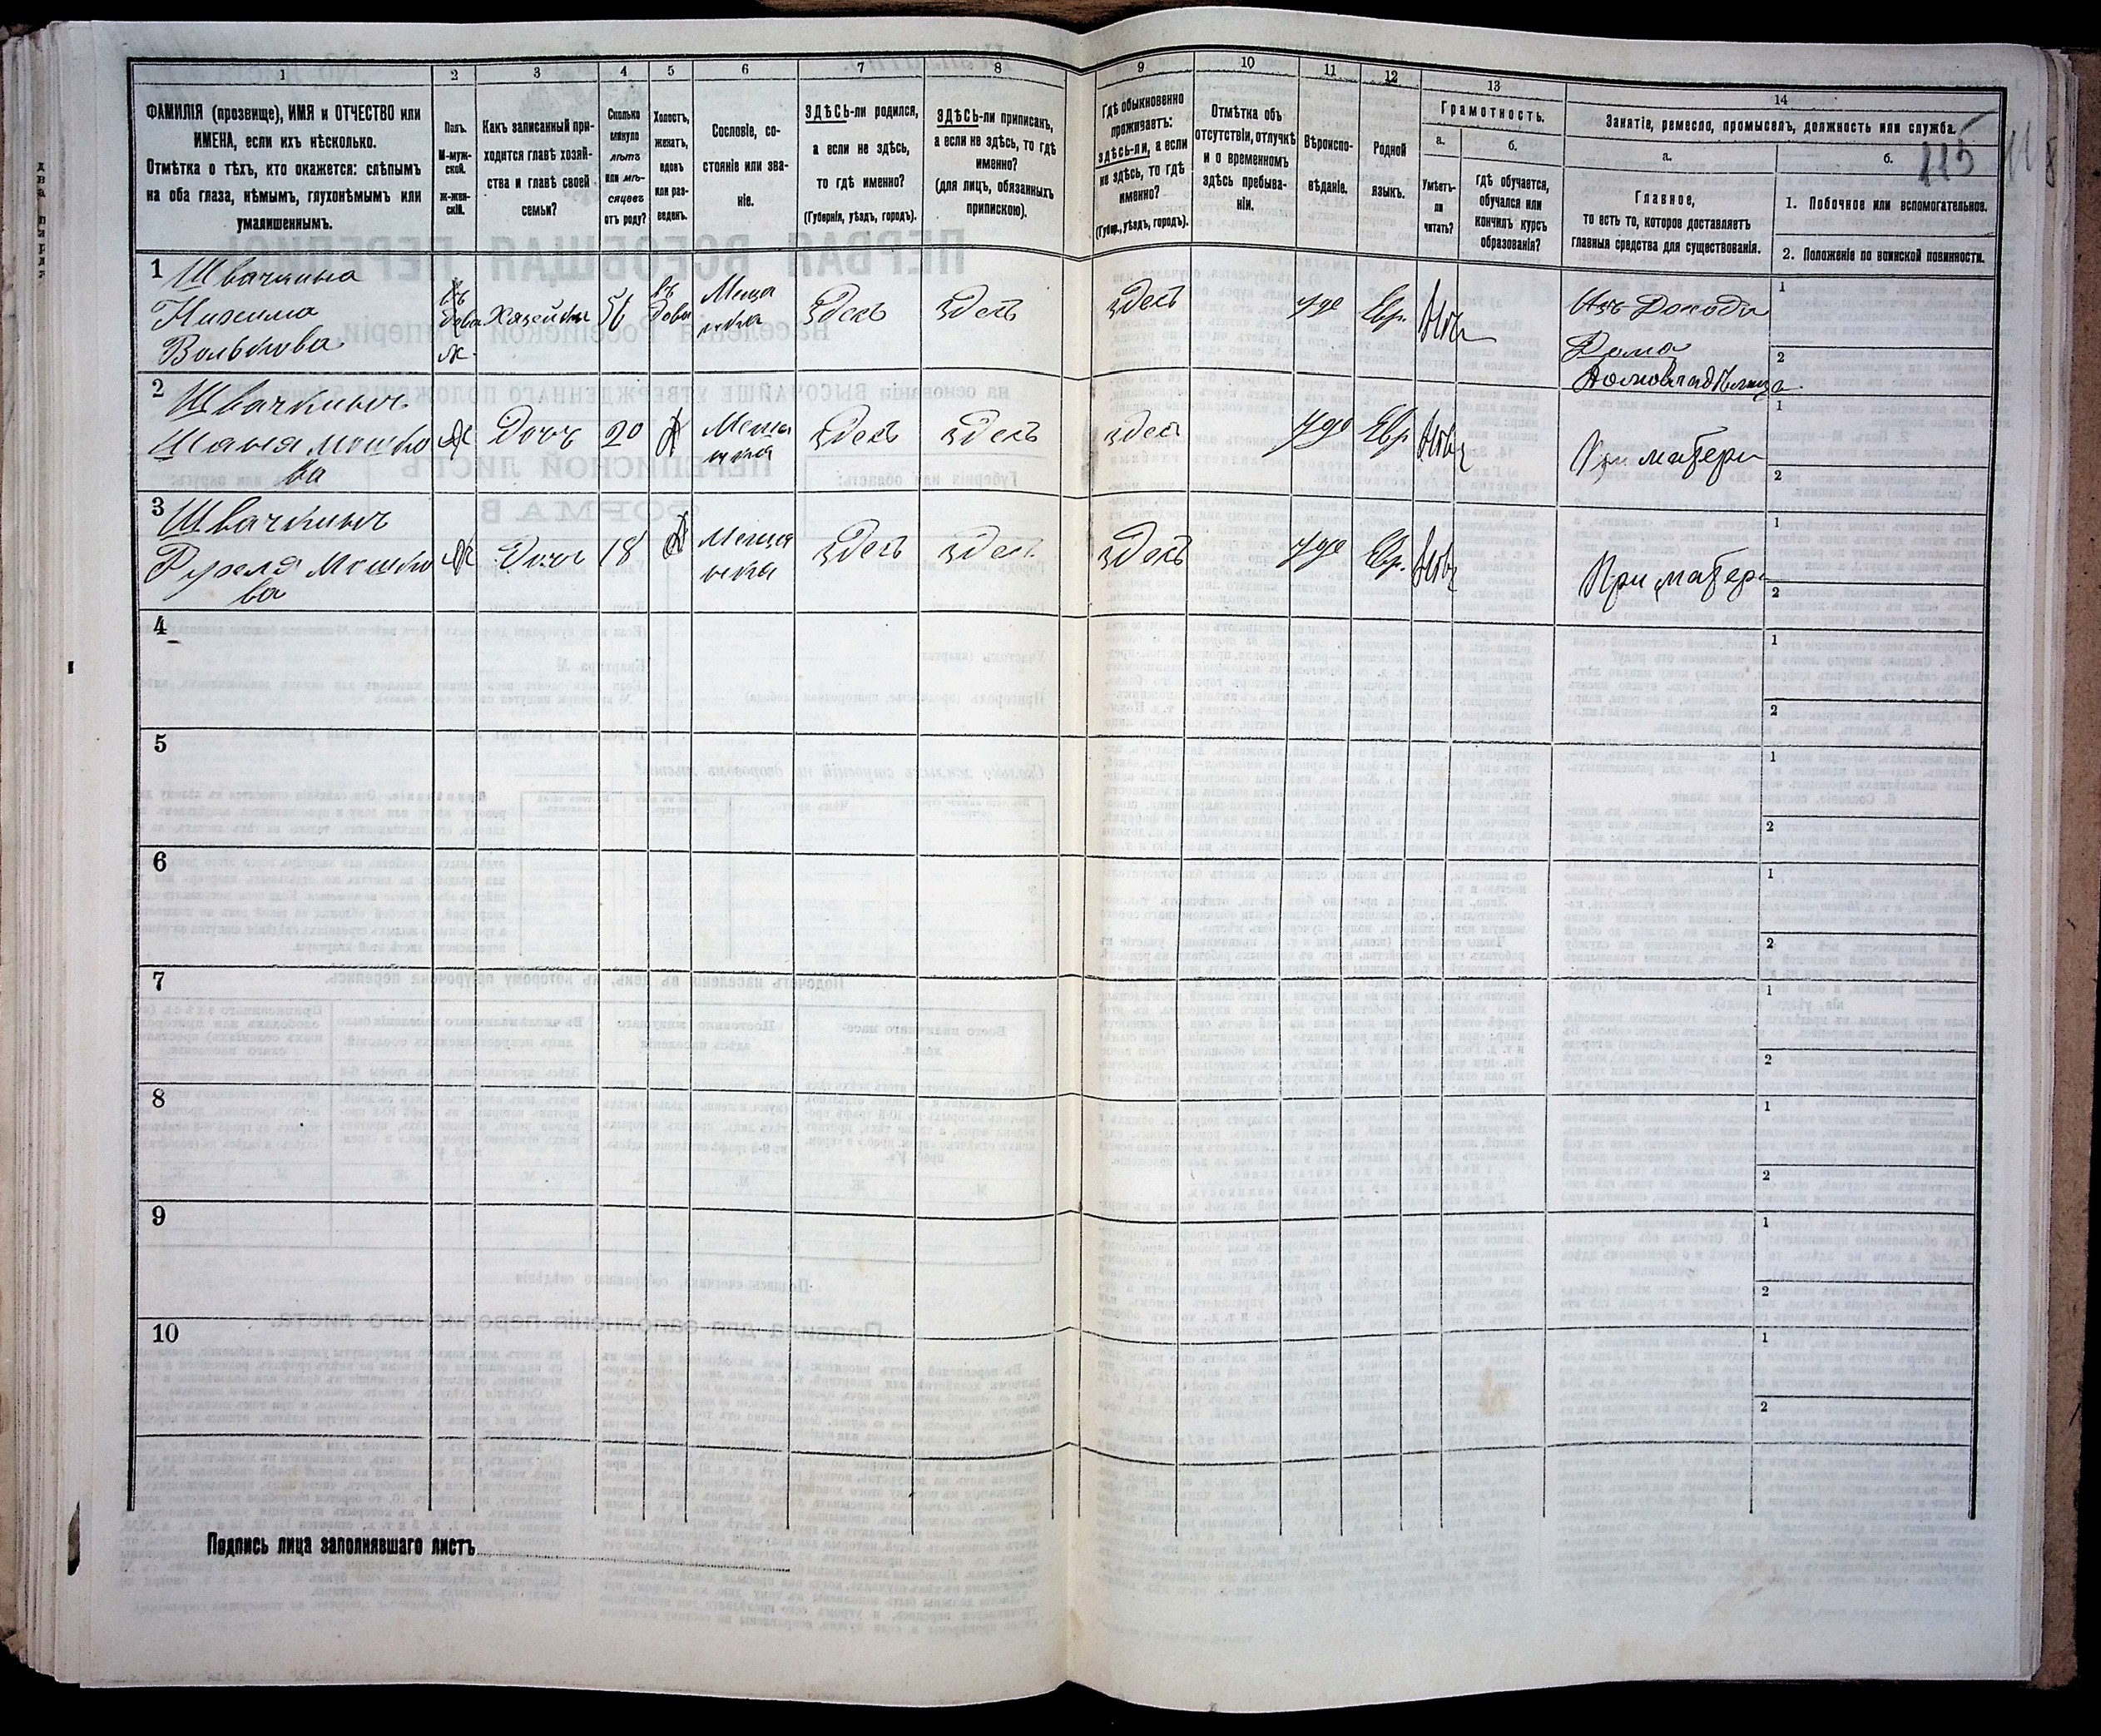 1 2 3 4 5 6 7 8 9 10 11 12 13 14
ФАМИЛІЯ (прозвище), ИМЯ и ОТЧЕСТВО или
ИМЕНА, если ихъ нѣсколько.
Отмѣтка о тѣхъ, кто окажется: слѣпымъ
на оба глаза, нѣмымъ, глухонѣмымъ или
умалишеннымъ.
Полъ.
М-муж-
ской.
ж-жен-
скій.
Какъ записанный при-
ходится главѣ хозяй-
ства и главѣ своей
семьи?
Сколько
минуло
лѣтъ
или мѣ-
сяцевъ
отъ роду?
Холостъ,
женатъ,
вдовъ
или раз-
веденъ.
Сословіе, со-
стояніе или зва-
ніе.
ЗДѢСЬ-ли родился,
а если не здѣсь,
то гдѣ именно?
(Губернія, уѣздъ, городъ).
ЗДѢСЬ-ли приписанъ,
а если не здѣсь, то гдѣ
именно?
(для лицъ, обязанныхъ
припискою).
Гдѣ обыкновенно
проживаетъ:
здѣсь-ли, а если
не здѣсь, то гдѣ
именно?
(Губер., уѣздъ, городъ).
Отмѣтка объ
отсутствіи, отлучкѣ
и о временномъ
здѣсь пребыва-
ніи.
Вѣроиспо-
вѣданіе.
Родной
языкъ.
Грамотность.
а.
Умѣетъ-
ли
читать?
б.
гдѣ обучается,
обучался или
кончилъ курсъ
образованія?
Занятіе, ремесло, промыселъ, должность или служба.
115
118
а.
Главное,
то есть то, которое доставляетъ
главныя средства для существованія.
б.
1. Побочное или вспомогательное.
2. Положеніе по воинской повинности.
1 Швачкина
Волькова
ж
56
Меща
нка
Здесь Здесь здесь Іуде Евр. Нетъ
Изъ Доходи
Дома
Домовладѣлица
1
2
2 Швачкинъ
Мошко
ва
Ж Дочь 20 Д
Здесь здесь здесь Іуде Евр Нетъ
При матери
1
2
3 Швачкинъ
Мошко
ва
Ж Дочь 18 Д
здесь здесь здесь Іуде Евр. Нетъ
При матери
1
2
4
1
2
5
1
2
6
1
2
7
1
2
8
1
2
9
1
2
10
1
2
Подпись лица заполнявшаго листъ